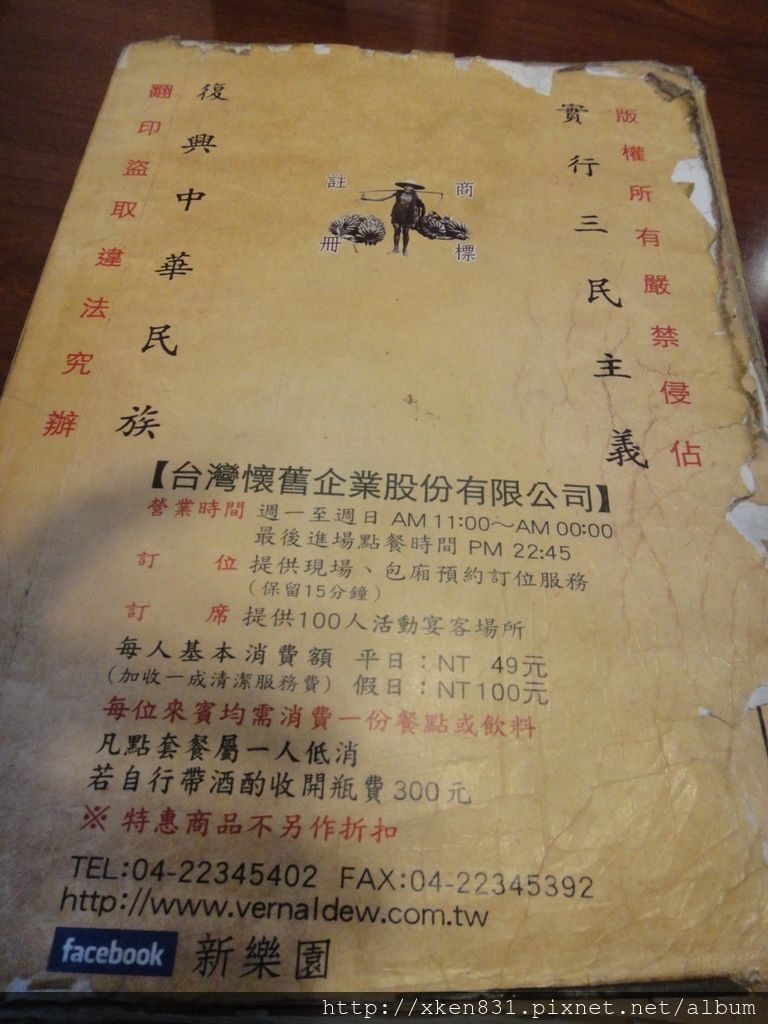 版權所有嚴禁侵佔
實行三民主義
商標
註冊
復興中華民族
翻印盜取違法究辦
【台灣懷舊企業股份有限公司】
營業時間 週一至週日 AM 11:00～AM 00:00
最後進場點餐時間 PM 22:45
訂 位 提供現場、包廂預約訂位服務
(保留15分鐘)
訂 席 提供100人活動宴客場所
每人基本消費額 平日：NT 49元
(加收一成清潔服務費) 假日：NT100元
每位來賓均需消費一份餐點或飲料
凡點套餐屬一人低消
若自行帶酒酌收開瓶費300元
※ 特惠商品不另作折扣
TEL:04-22345402 FAX:04-22345392
http://www.vernaldew.com.tw
facebook 新樂園
http://xken831.pixnet.net/album